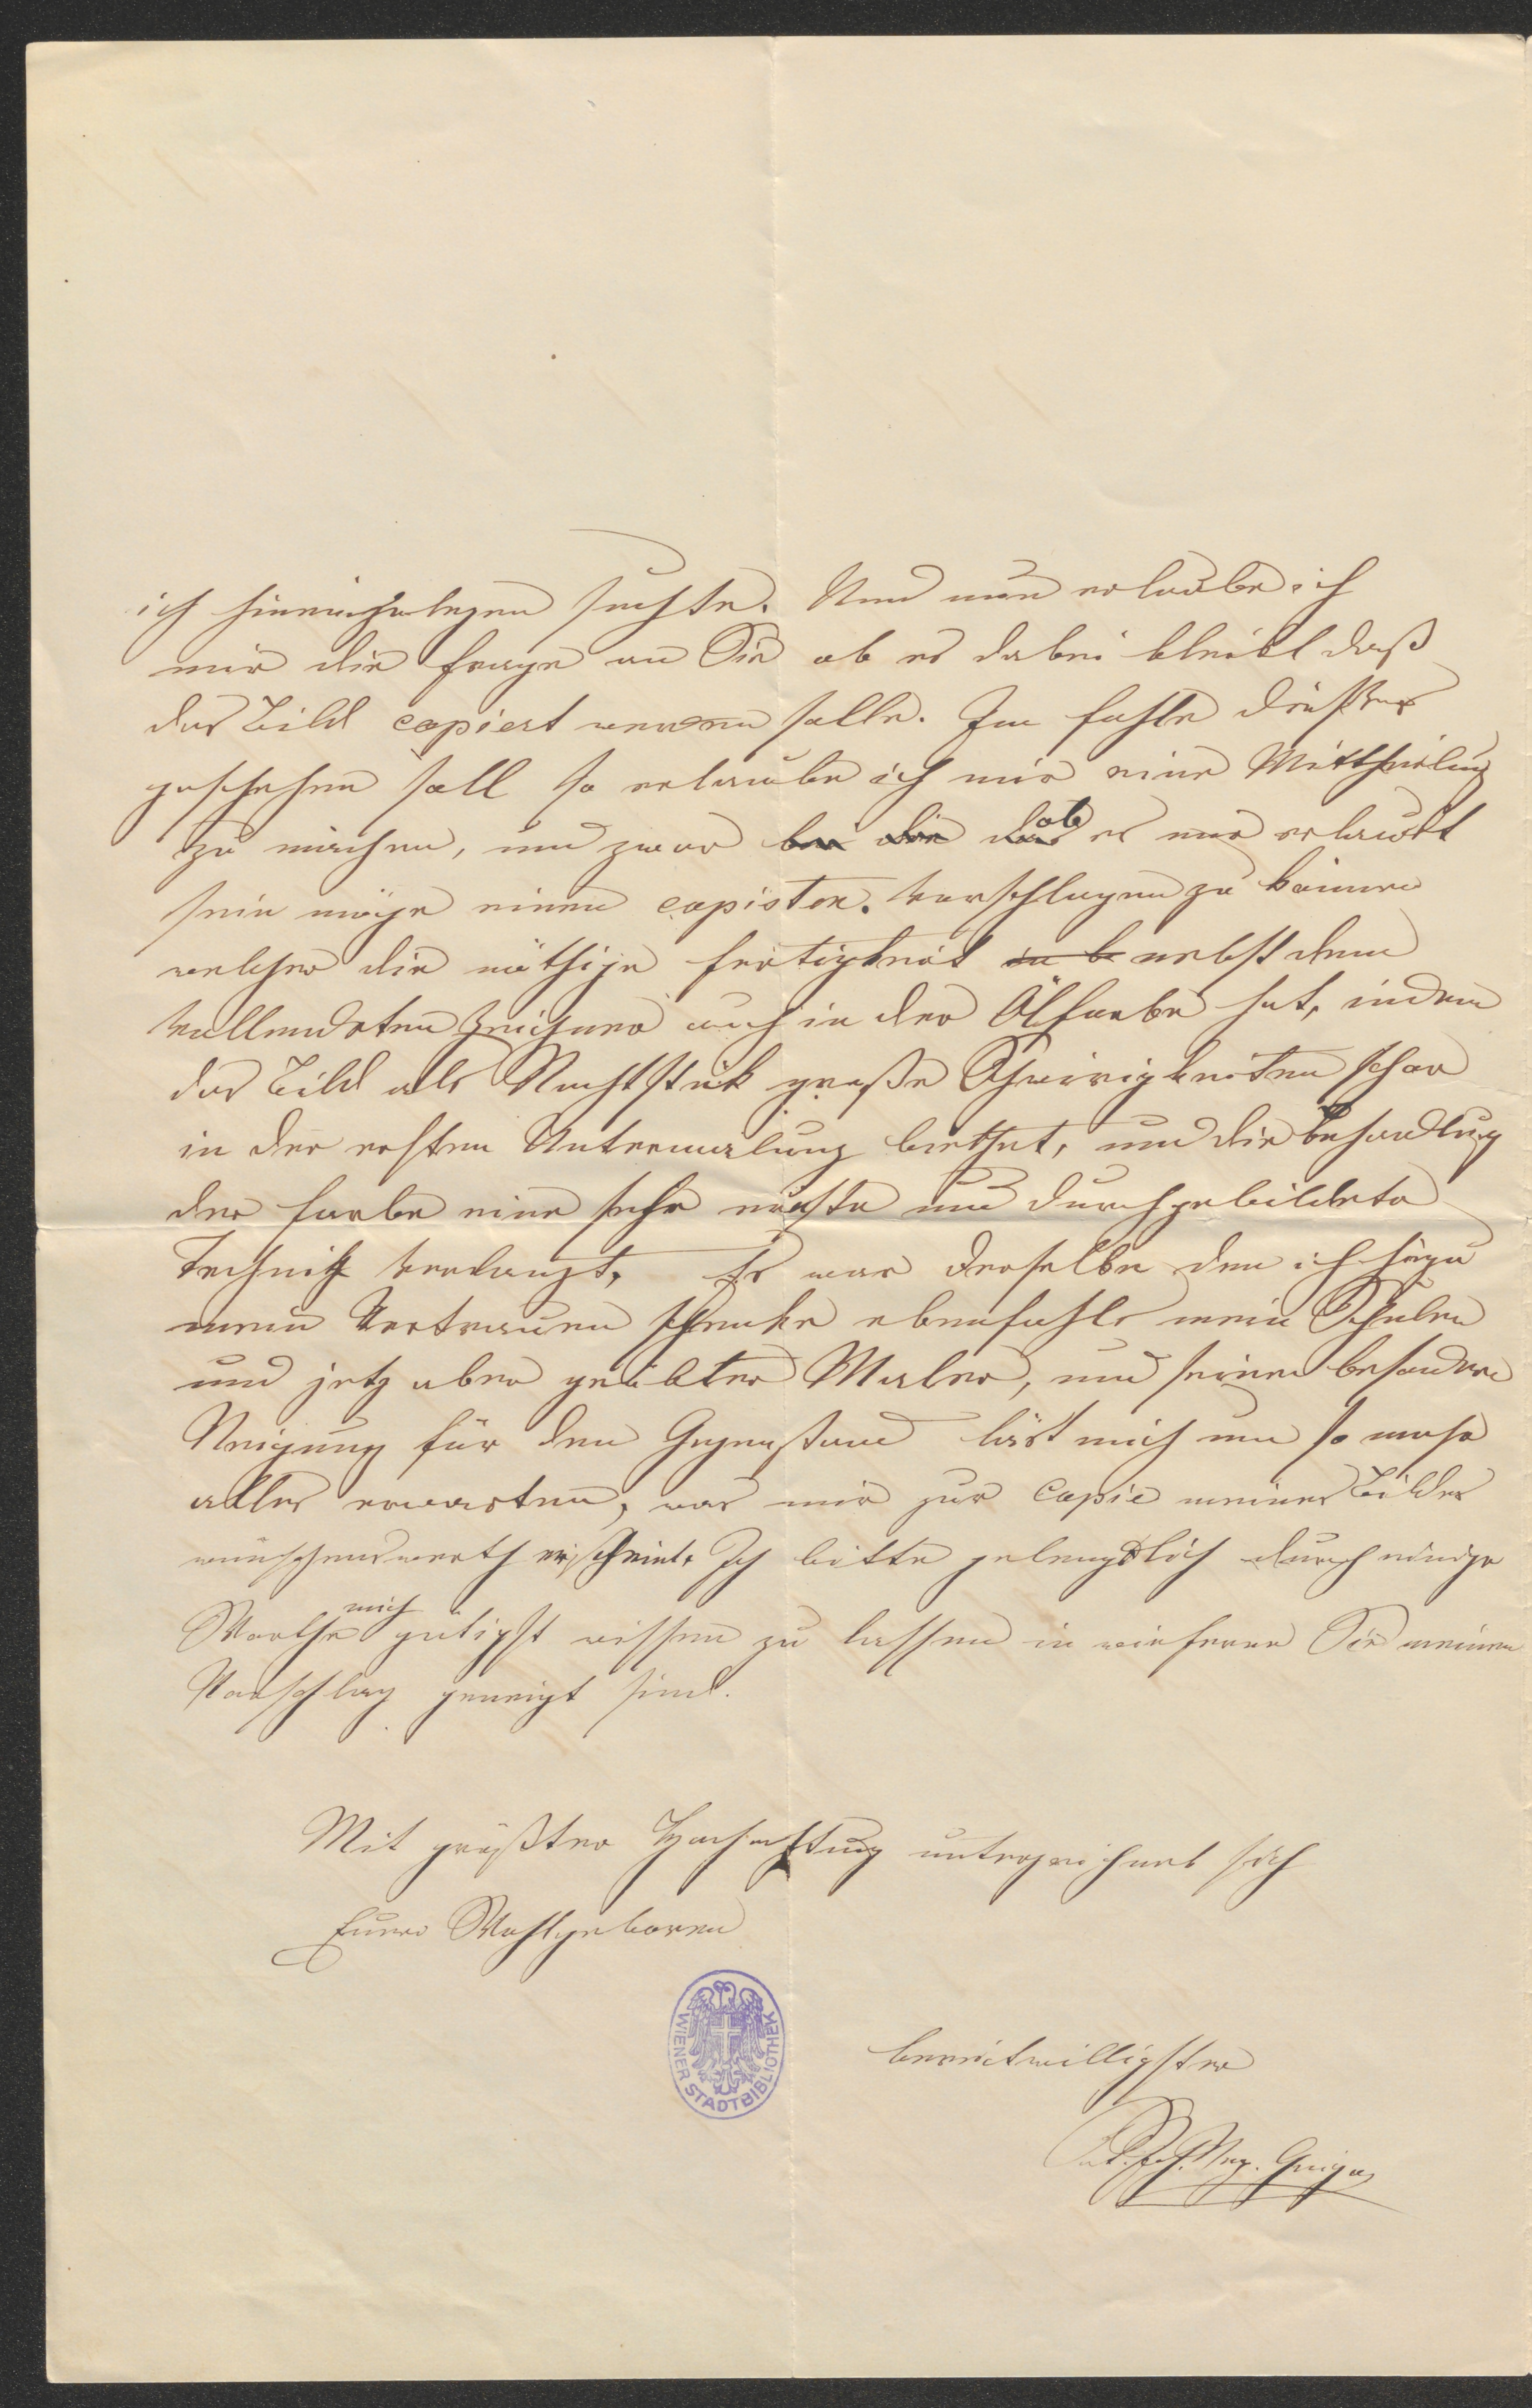 ich hineinzulegen suchte. Und nun erlaube ich
mir die Frage an Sie ob es dabei bleibt daß
das Bild copiert werden solle. Im Fahle dieses
geschehen soll so erlaube ich mir eine Mittheilung
zu machen, und zwar ob es mir erlaubt
sein möge einen copisten. vorschlagen zu können
welcher die nöthige Fertigkeit nebst dem
vollendeten Zeichner auch in der Ölfarbe hat, indem
das Bild als Nachtstük große Schwirigkeiten schon
in der ersten Untermalung biethet, und die Behandlung
der Farbe eine sehr und durchgebildete
Technik verlangt. Es war derselbe den ich hiezu
mein Vertrauen schenke ebenfahls mein Schüler
und jetz aber geübter Maler, und seine besondere
Neigung für den Gegenstand läst mich um so mehr
alles erwarten, was mir zur Copie meines Bildes
wünschenswerth erscheint. Ich bitte gelengtlich durch einige
Worthe mich gütigst wissen zu lassen in wieferne Sie meinen
Vorschlag geneigt sind.
Mit größter Hochachtung unterzeichnet sich
Euer Wohlgeboren
WIENER STADTBIBLIOTHEK
bereitwilligster
Geiger